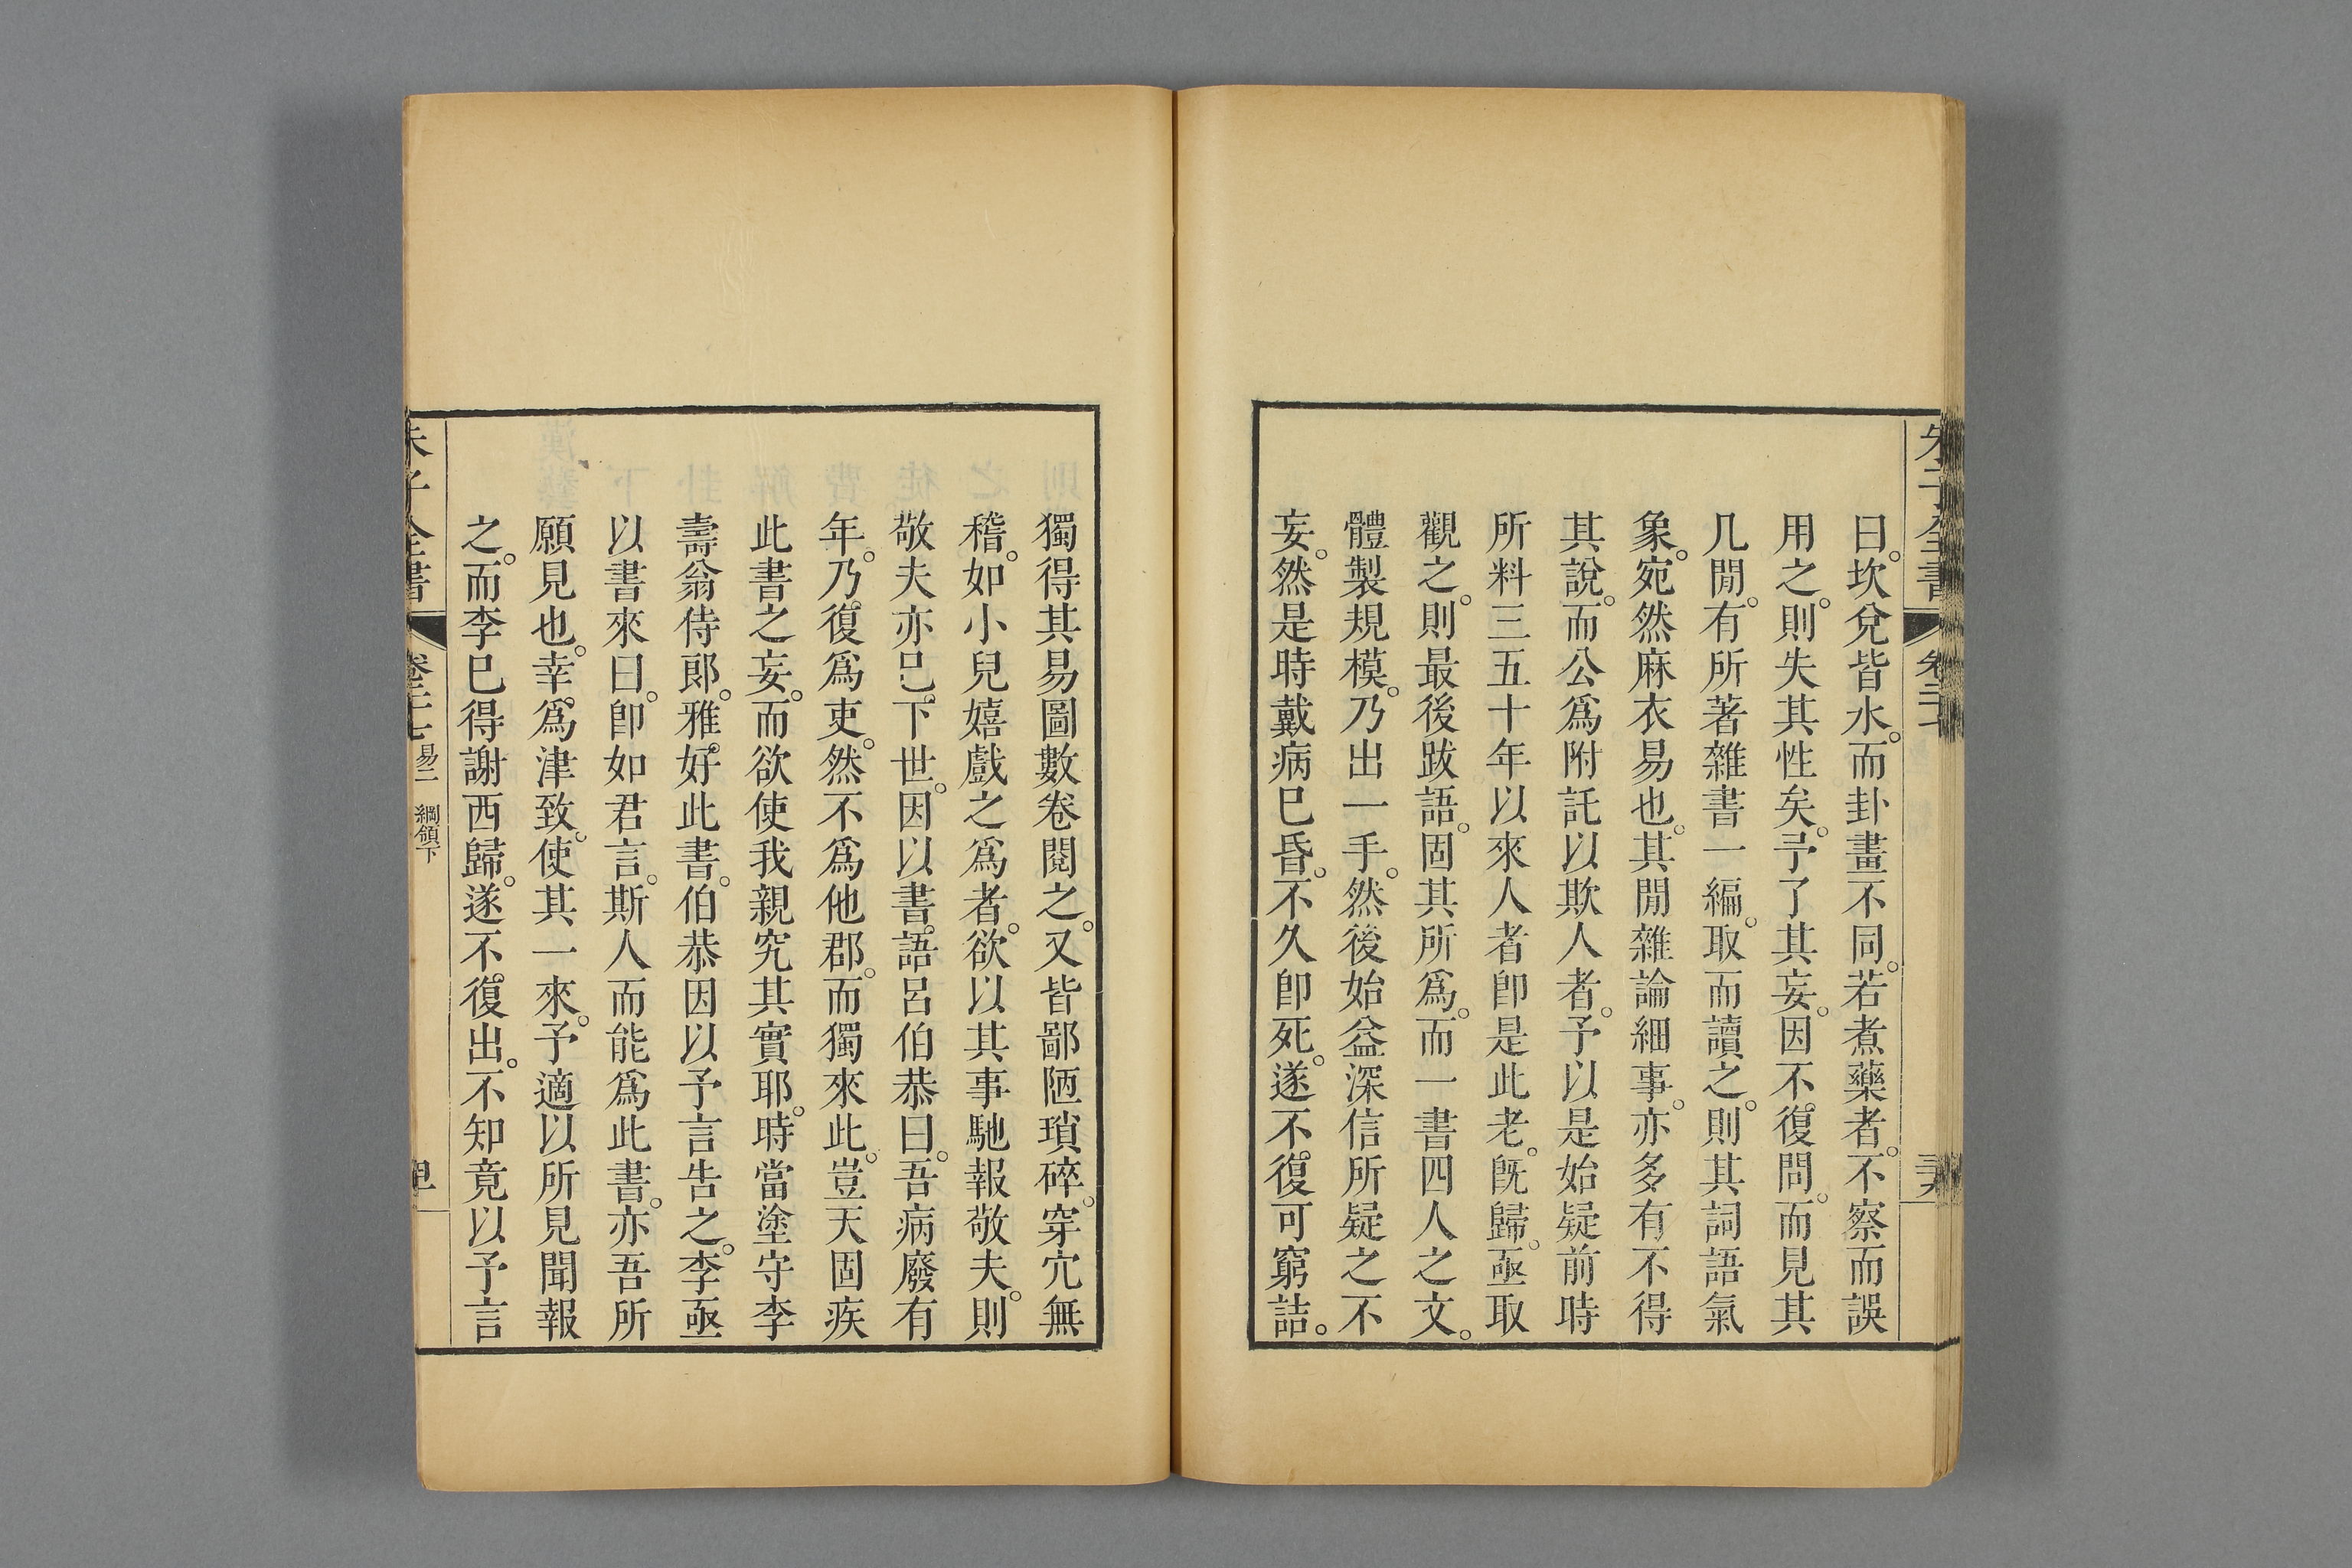 朱子全書 卷二十七
曰。坎兌皆水。而卦畫不同。若煮藥者。不察而誤
用之。則失其性矣。予了其妄。因不復問。而見其
几閒。有所著雜書一編。取而讀之。則其詞語氣
象。宛然麻衣易也。其閒雜論細事。亦多有不得
其說。而公爲附託以欺人者。予以是始疑前時
所料三五十年以來人者卽是此老。旣歸。亟取
觀之。則最後跋語。固其所爲。而一書四人之文。
體製規模。乃出一手。然後始益深信所疑之不
妄。然是時戴病已昏。不久卽死。遂不復可窮詰。
獨得其易圖數卷閱之。又皆鄙陋瑣碎。穿穴無
稽。如小兒嬉戲之爲者。欲以其事馳報敬夫。則
敬夫亦已下世。因以書語呂伯恭曰。吾病廢有
年。乃復爲吏。然不爲他郡。而獨來此。豈天固疾
此書之妄。而欲使我親究其實耶。時當塗守李
壽翁侍郎。雅好此書。伯恭因以予言告之。李亟
以書來曰。卽如君言。斯人而能爲此書。亦吾所
願見也。幸爲津致。使其一來。予適以所見聞報
之。而李已得謝西歸。遂不復出。不知竟以予言
朱子全書 卷二十七 易二 綱領下